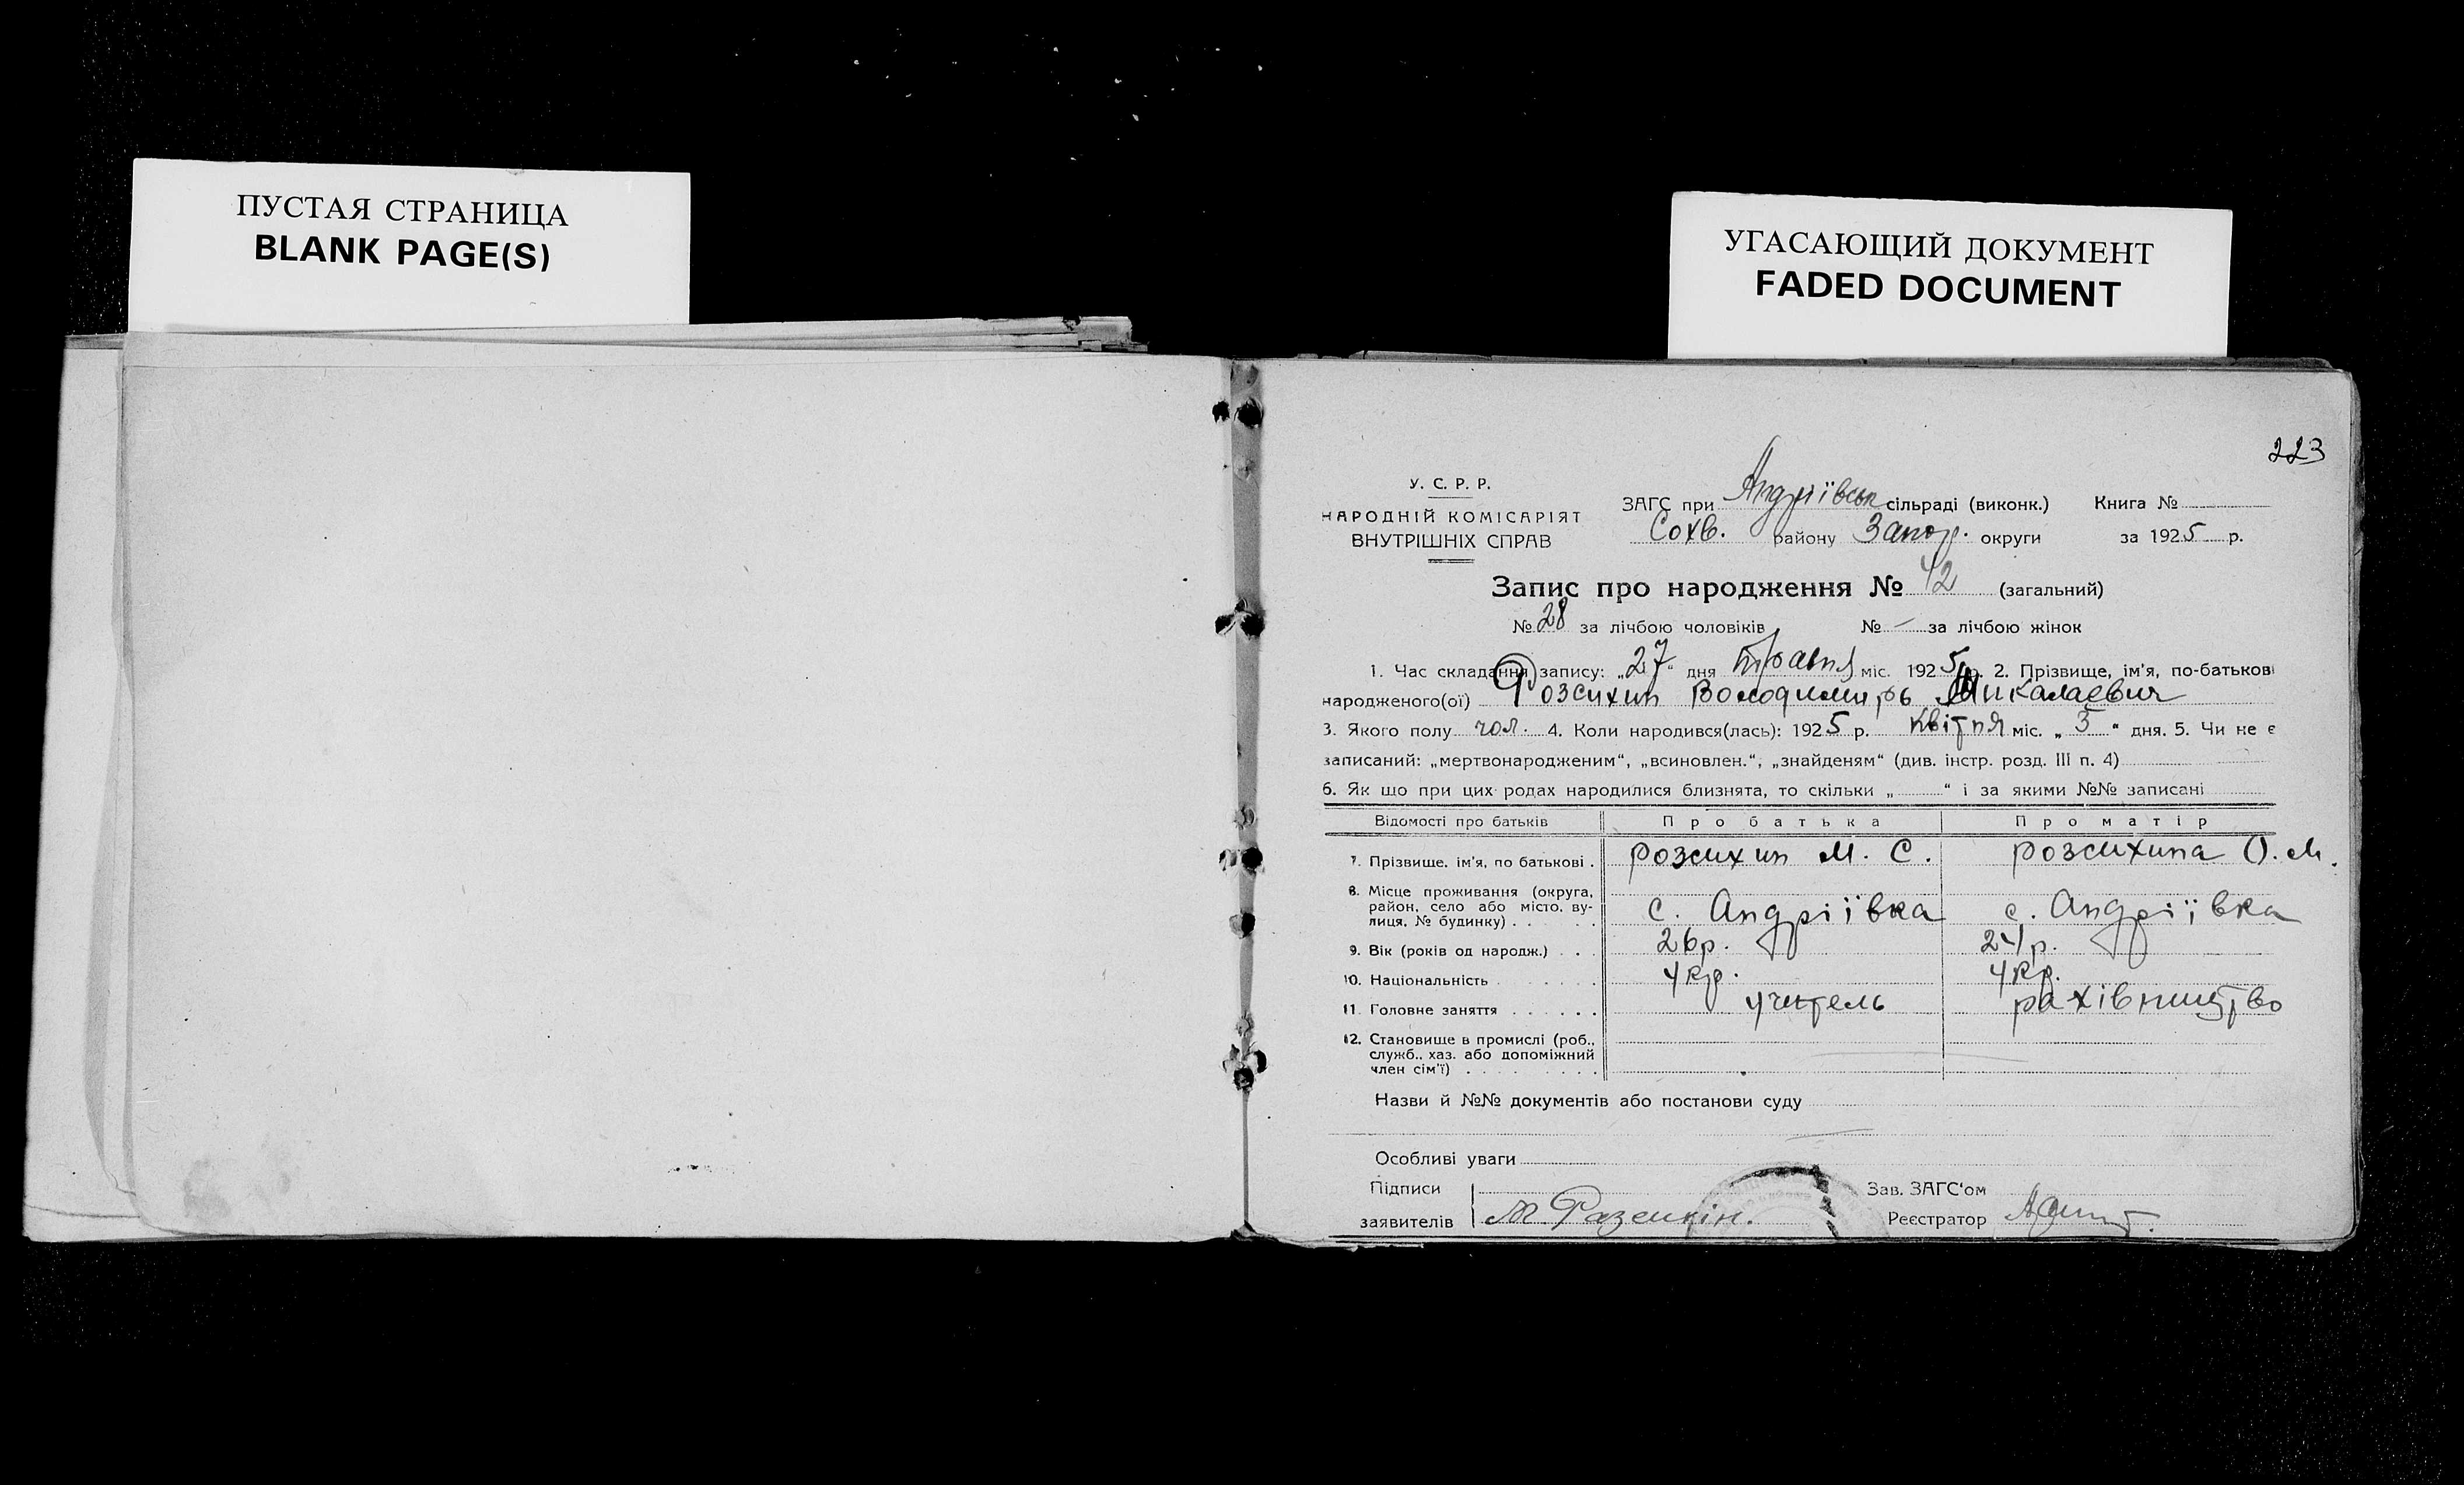 ПУСТАЯ СТРАНИЦА
BLANK PAGE(S)
УГАСАЮЩИЙ ДОКУМЕНТ
FADED DOCUMENT
223
У. С. Р. Р.
НАРОДНІЙ КОМІСАРІЯТ
ВНУТРІШНІХ СПРАВ
ЗАГС при Андріївськ сільраді (виконк.) Книга №
Сохв. району Запор. округи за 1925 р.
Запис про народження № 42 (загальний)
№ 28 за лічбою чоловіків № — за лічбою жінок
1. Час складання запису: „27“ дня травня міс. 1925 р. 2. Прізвище, ім'я, по-батькові
народженого(ої) Розсихин Володимиръ Микалаевич
3. Якого полу чол. 4. Коли народився(лась): 1925 р. квітня міс. „3“ дня. 5. Чи не є
записаний: „мертвонародженим“, „всиновлен.“, „знайденям“ (див. інстр. розд. III п. 4)
6. Як що при цих родах народилися близнята, то скільки „ “ і за якими №№ записані
Відомості про батьків Про батька Про матір
7. Прізвище, ім'я, по батькові . розсихин М. С. розсихина О. М.
8. Місце проживання (округа,
район, село або місто, ву-
лиця, № будинку) . . . с. Андріївка с. Андріївка
9. Вік (років од народж.) . . . 26р. 24р.
10. Національність укр. укр.
11. Головне заняття учитель рахівництво
12. Становище в промислі (роб.,
служб., хаз. або допоміжний
член сім'ї)
Назви й №№ документів або постанови суду
Особливі уваги
Підписи Зав. ЗАГС'ом
заявителів М Разсихін. Реєстратор